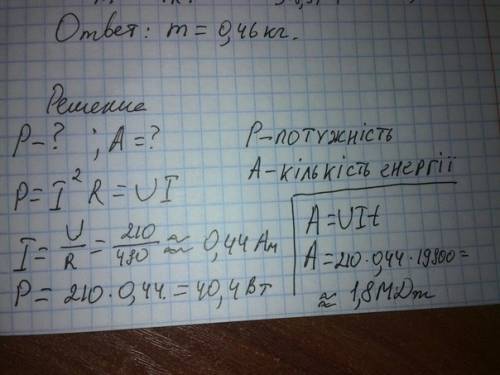 Ответ: m = 0,46 кг.
Решение
P-? ; A=?
P=I² R = UI
I= U/R = 210/480 ≈ 0,44 Ам
P= 210·0,44.=40,4 Вт
P-потужність
A-кількість енергії
A=UIt
A=210·0,44·19800=
≈ 1,8МДж